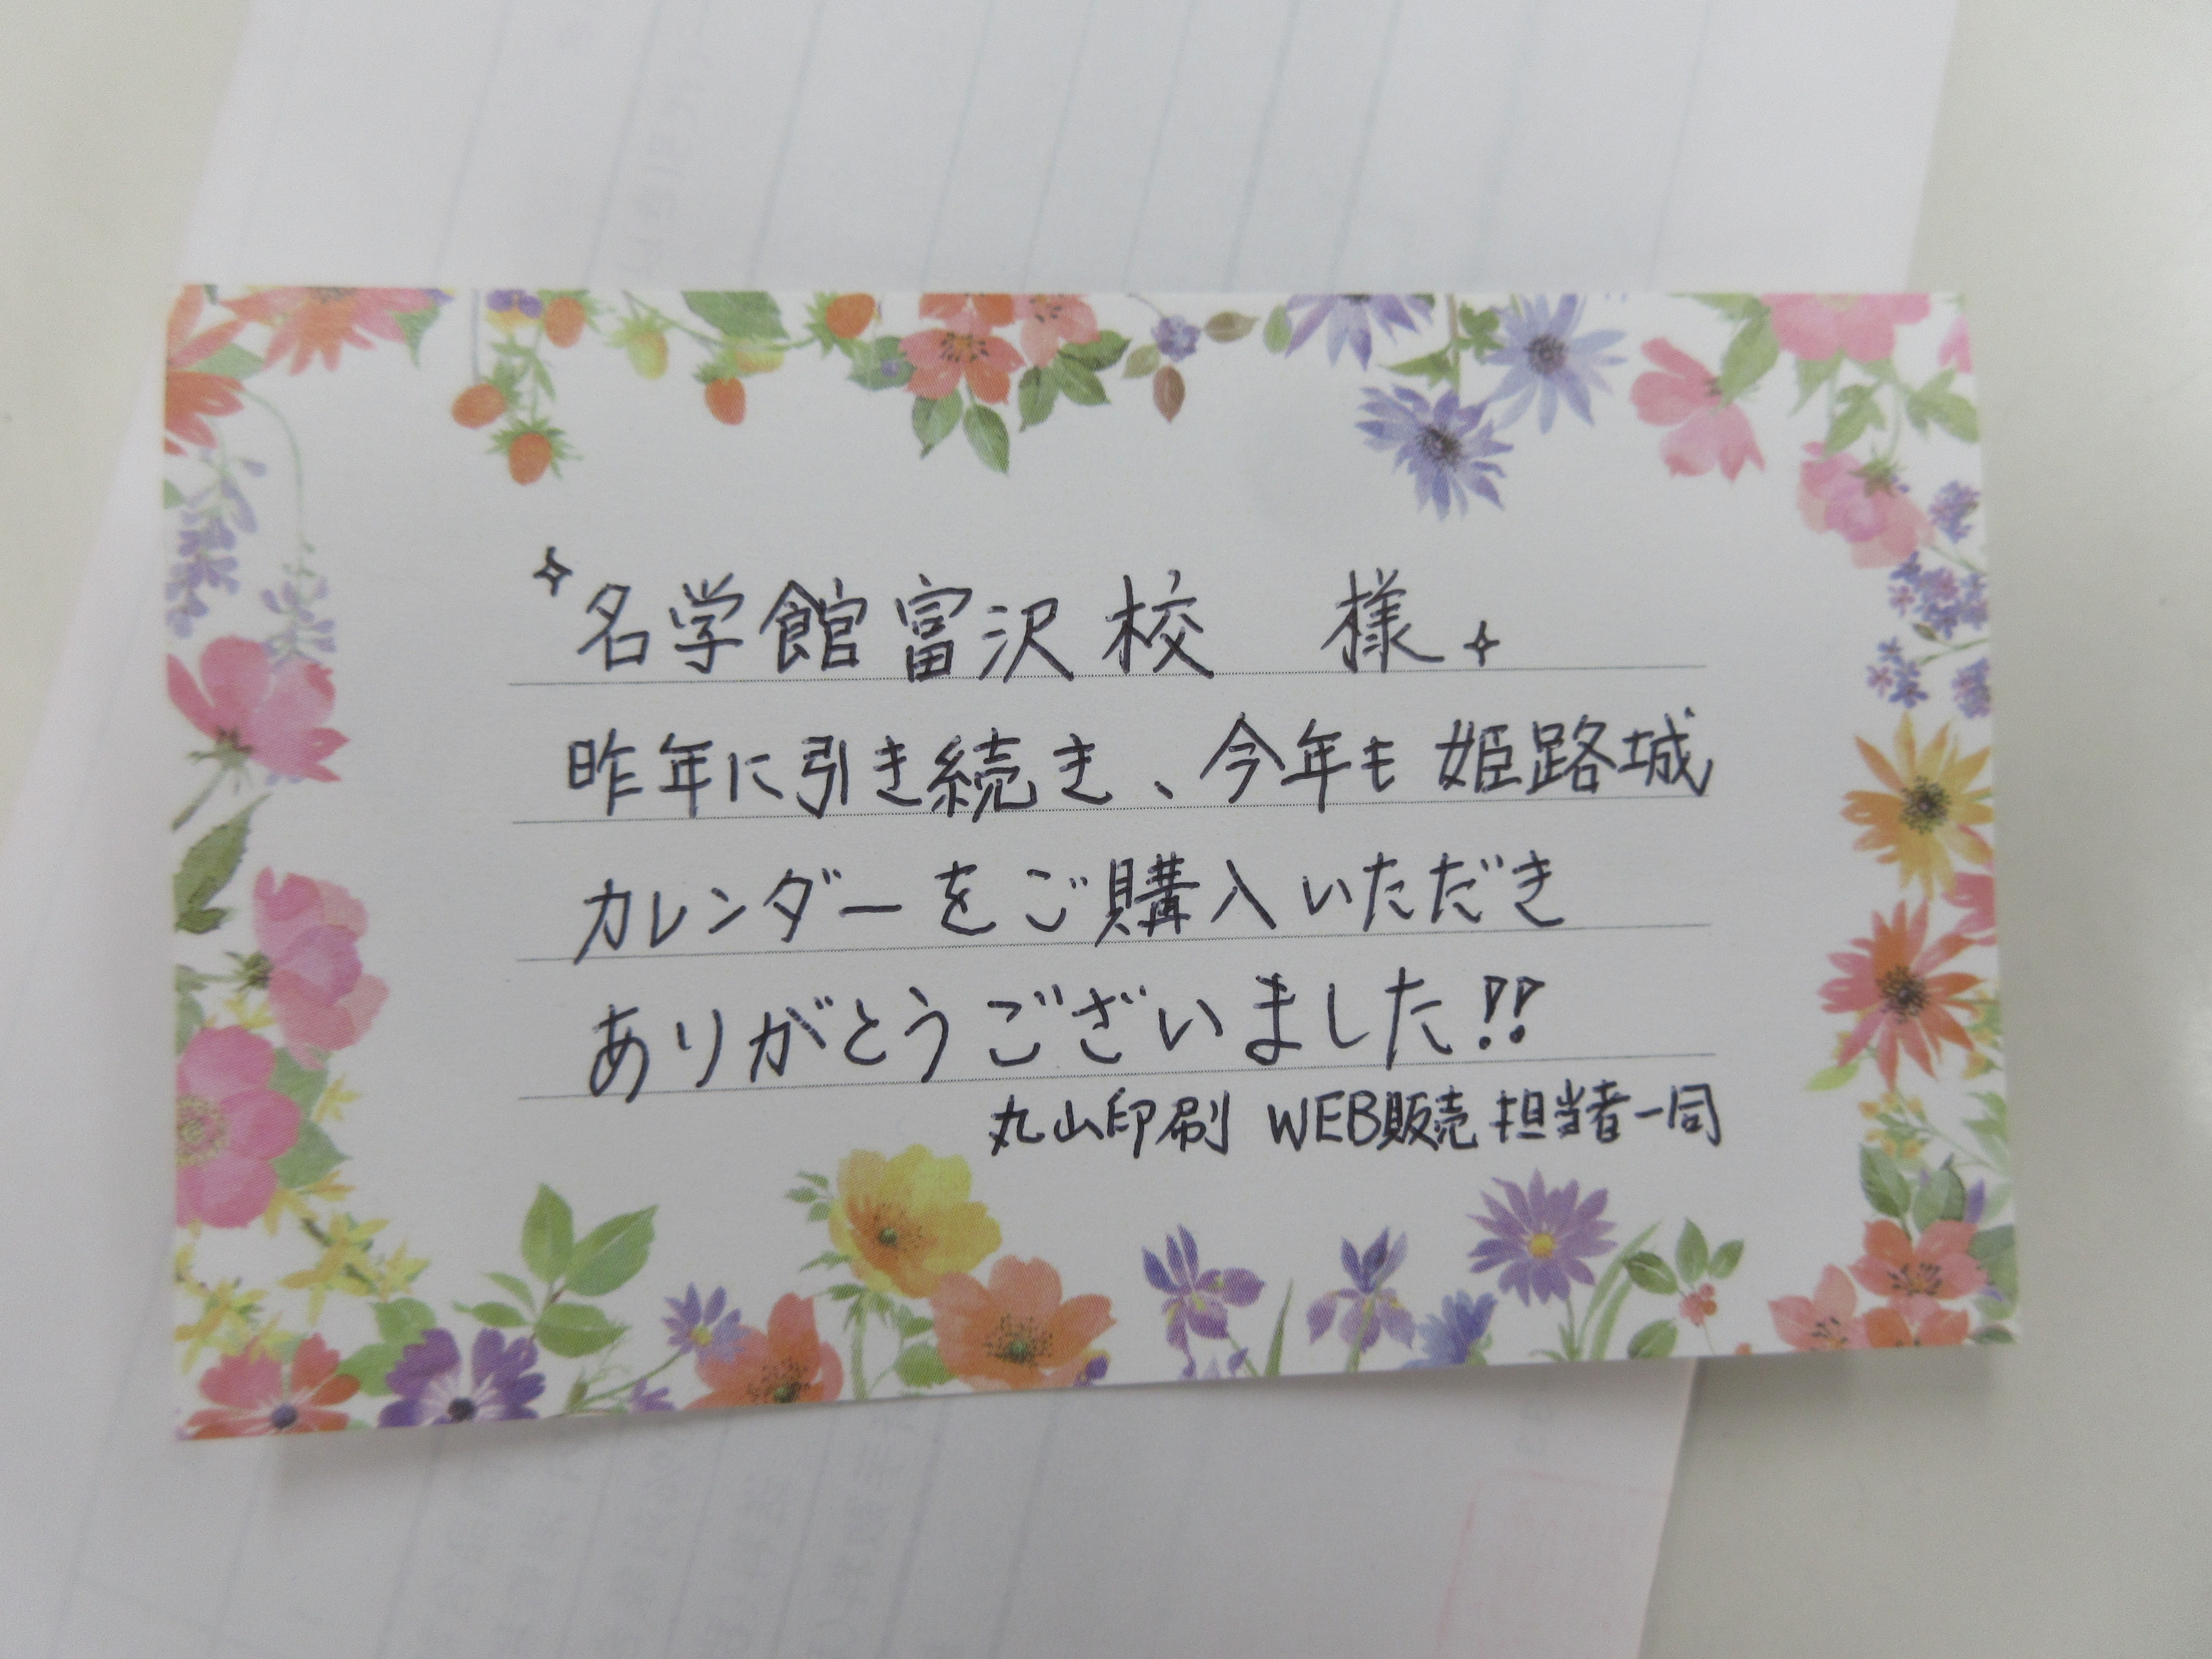 ✧名学館富沢校　様✧
昨年に引き続き、今年も姫路城
カレンダーをご購入いただき
ありがとうございました!!
丸山印刷 WEB販売担当者一同